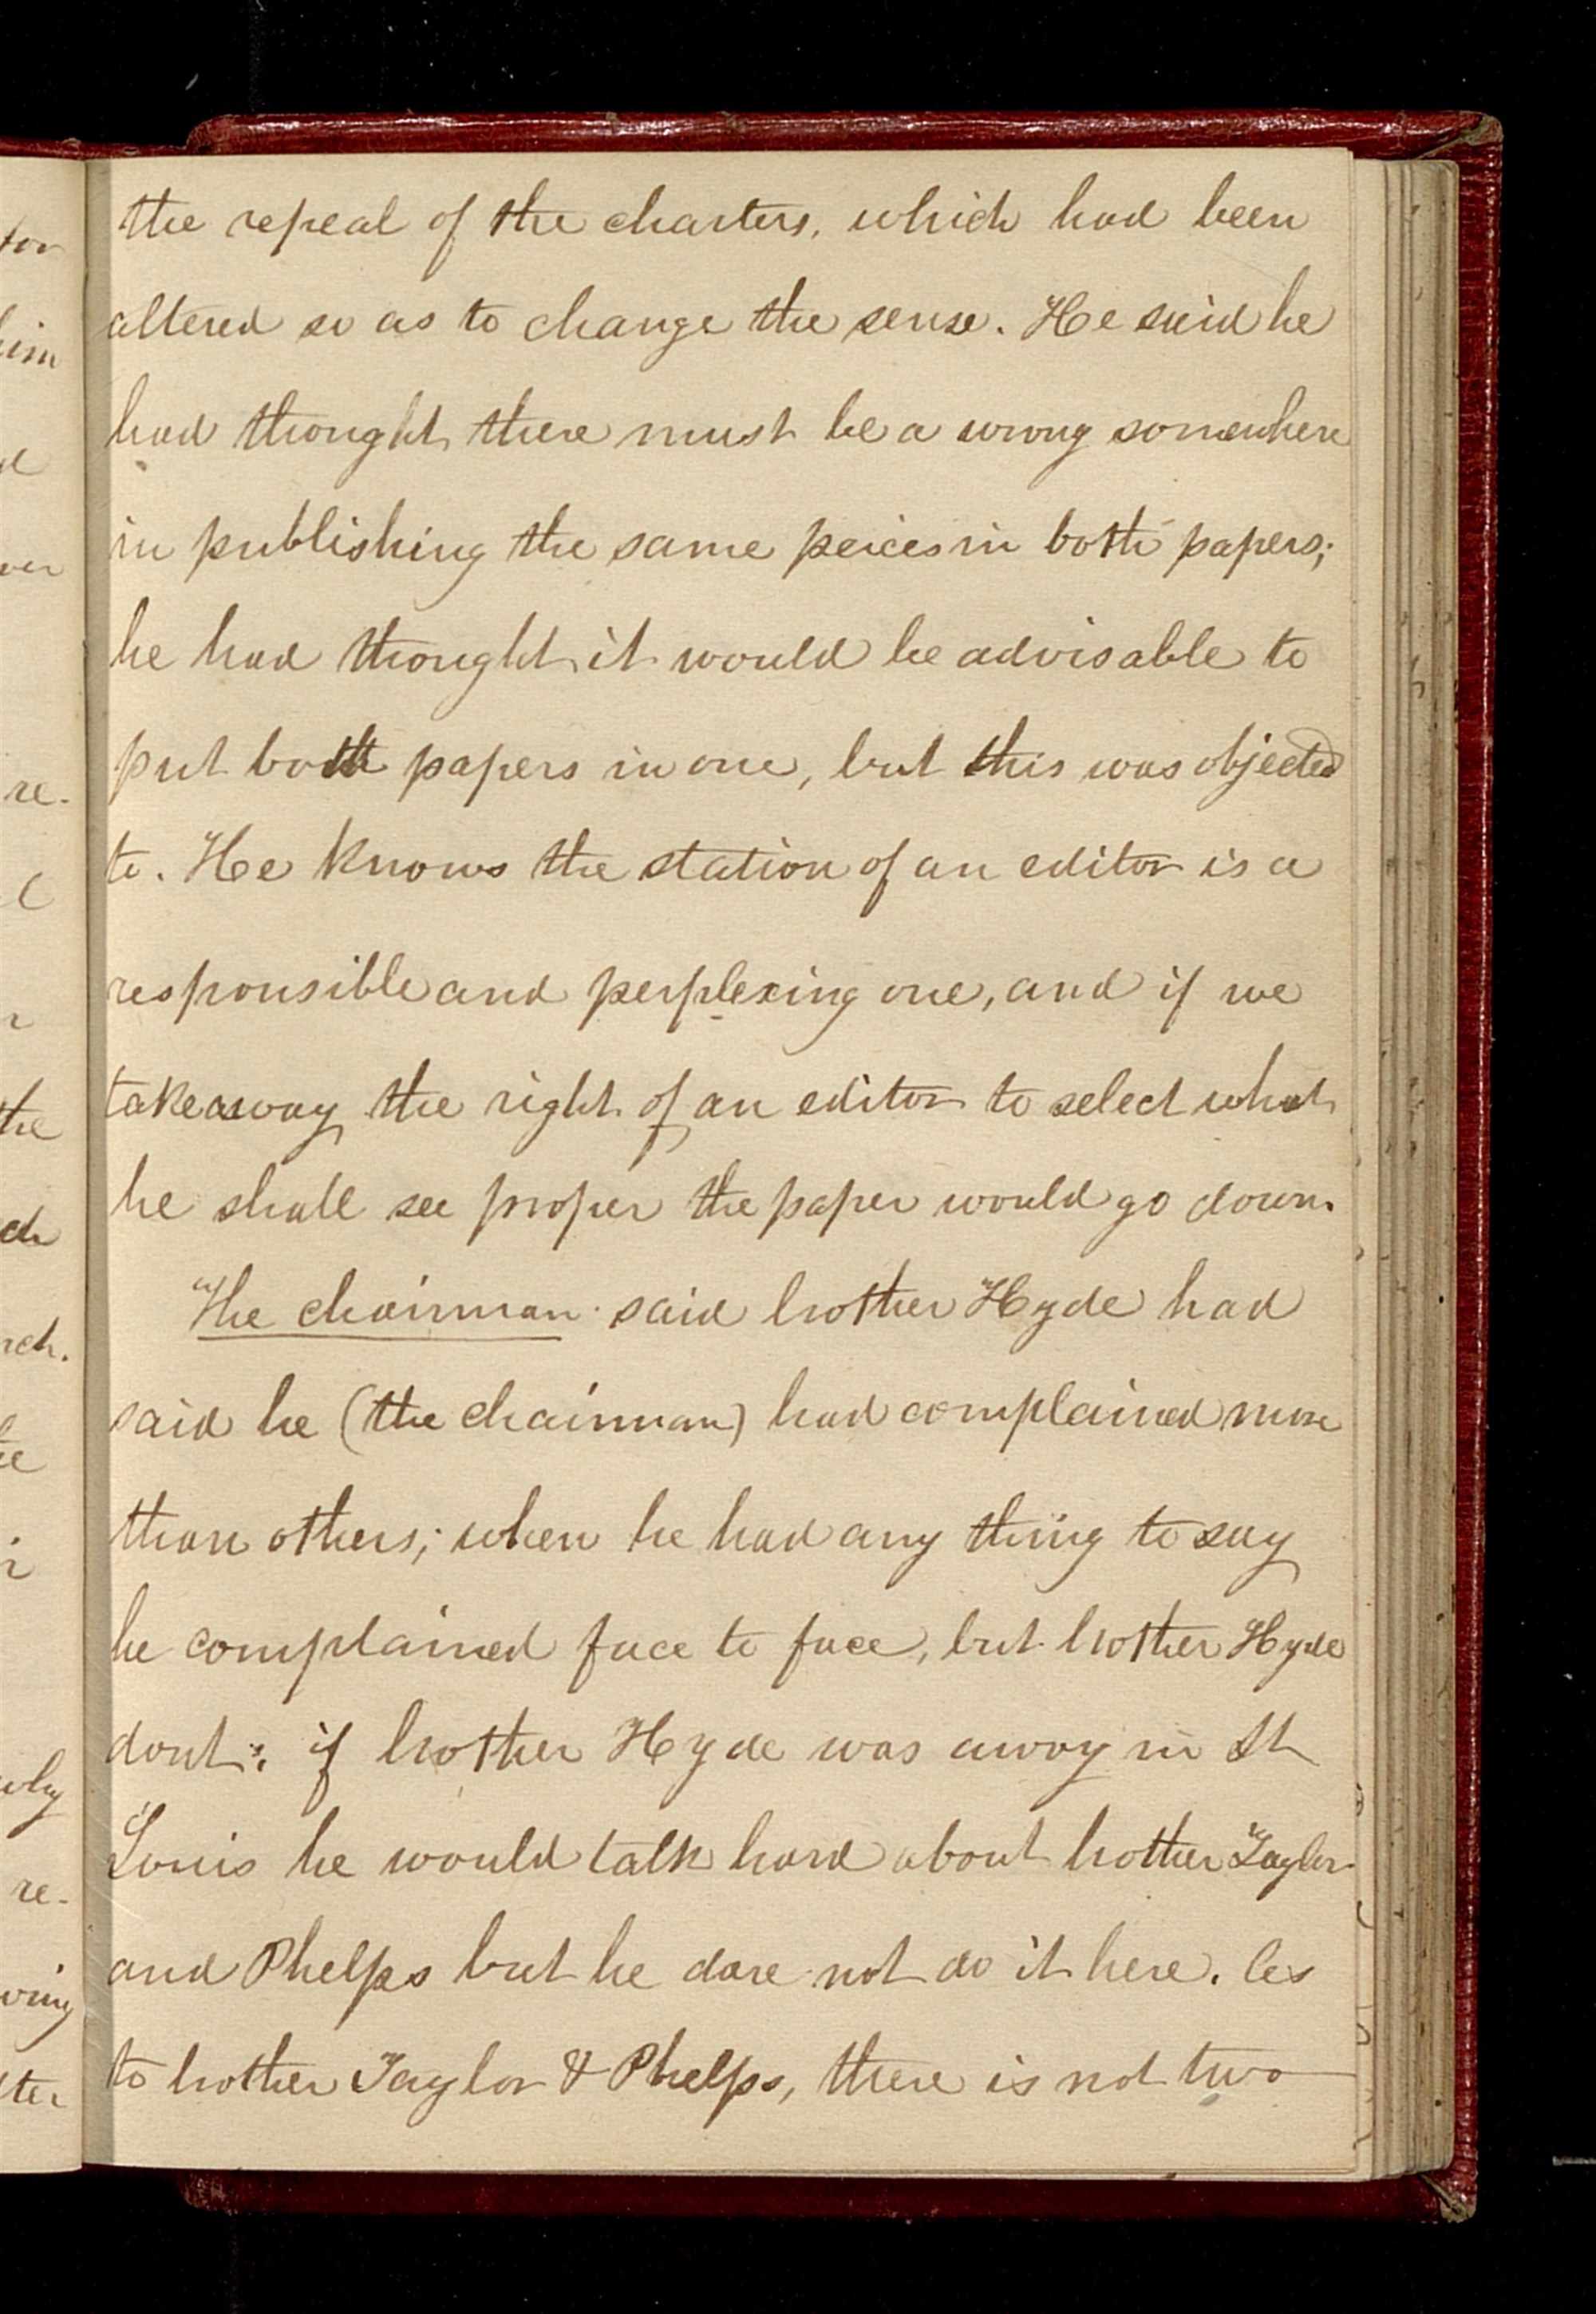 the repeal of the charters, which had been
altered so as to change the sense. He said he
had thought there must be a wrong somewhere
in publishing the same peices in both papers;
he had thought it would be advisable to
put both papers in one, but this was objected
to. He knows the station of an editor is a
responsible and perplexing one, and if we
take away the right of an editor to select what
he shall see proper the paper would go down.
The chairman said brother Hyde had
said he (the chairman) had complained more
than others; when he had any thing to say
he complained face to face, but brother Hyde
dont; if brother Hyde was away in St
Louis he would talk hard about brother Taylor
and Phelps but he dare not do it here. As
to brother Taylor & Phelps, there is not two